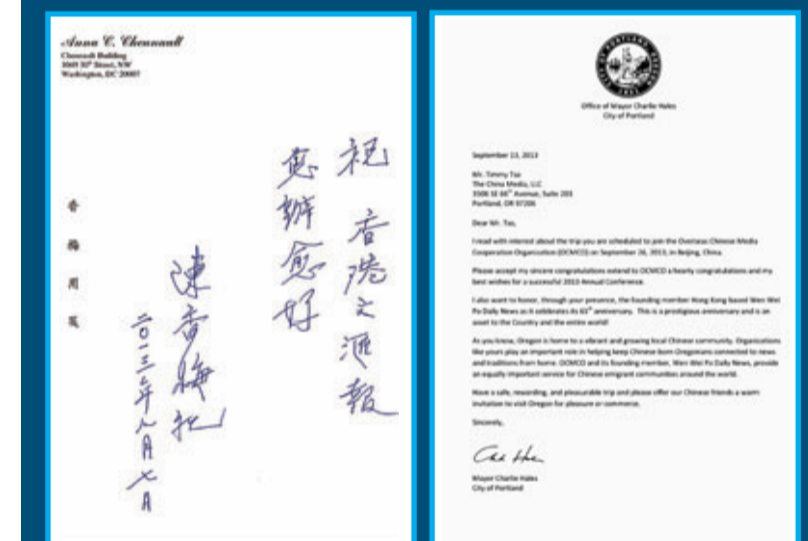 Anna C. Chennault
Chennault Building
1049 30th Street, NW
Washington, DC 20007
祝 香港文滙報
愈辦愈好
陳香梅
二〇一三年八月七日
香梅用箋
Office of Mayor Charlie Hales
City of Portland
September 13, 2013
Mr. Timmy Tso
The China Media, LLC
3508 SE 66th Avenue, Suite 203
Portland, OR 97206
Dear Mr. Tso,
I read with interest about the trip you are scheduled to join the Overseas Chinese Media
Cooperation Organization (OCMCO) on September 26, 2013, in Beijing, China.
Please accept my sincere congratulations extend to OCMCO a hearty congratulations and my
best wishes for a successful 2013 Annual Conference.
I also want to honor, through your presence, the founding member Hong Kong based Wen Wei
Po Daily News as it celebrates its 65th anniversary. This is a prestigious anniversary and is an
asset to the Country and the entire world!
As you know, Oregon is home to a vibrant and growing local Chinese community. Organizations
like yours play an important role in helping keep Chinese-born Oregonians connected to news
and traditions from home. OCMCO and its founding member, Wen Wei Po Daily News, provide
an equally important service for Chinese emigrant communities around the world.
Have a safe, rewarding, and pleasurable trip and please offer our Chinese friends a warm
invitation to visit Oregon for pleasure or commerce.
Sincerely,
Mayor Charlie Hales
City of Portland